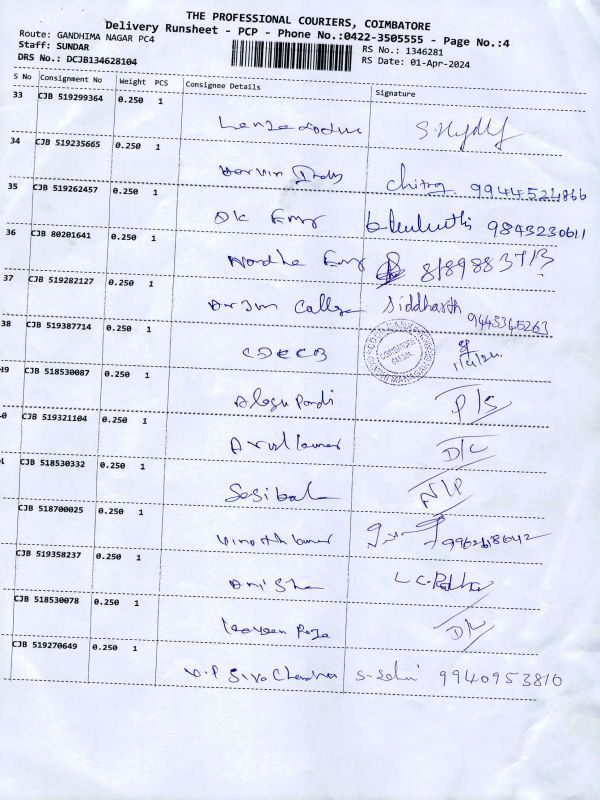 THE PROFESSIONAL COURIERS, COIMBATORE
Delivery Runsheet - PCP - Phone No.:0422-3505555 - Page No.:4
Route: GANDHIMA NAGAR PC4 RS No.: 1346281
Staff: SUNDAR RS Date: 01-Apr-2024
DRS No.: DCJB134628104
S No Consignment No Weight PCS Consignee Details Signature
33 CJB 519299364 0.250 1
34 CJB 519235665 0.250 1
Chitra 9944521866
35 CJB 519262457 0.250 1
DK Emg 9843230611
36 CJB 80201641 0.250 1
37 CJB 519282127 0.250 1
Siddharth
9445365263
38 CJB 519387714 0.250 1
CDECB
39 CJB 518530087 0.250 1
Alagu Pandi P/S
0 CJB 519321104 0.250 1
Arul kumar D/C
CJB 518530332 0.250 1
Sasibal N/P
CJB 518700025 0.250 1
Vinoth kumar
CJB 519358237 0.250 1
Anisha
CJB 518530078 0.250 1
Raja D/C
CJB 519270649 0.250 1
V.P Siva Chandran S. Selvi 9940953810